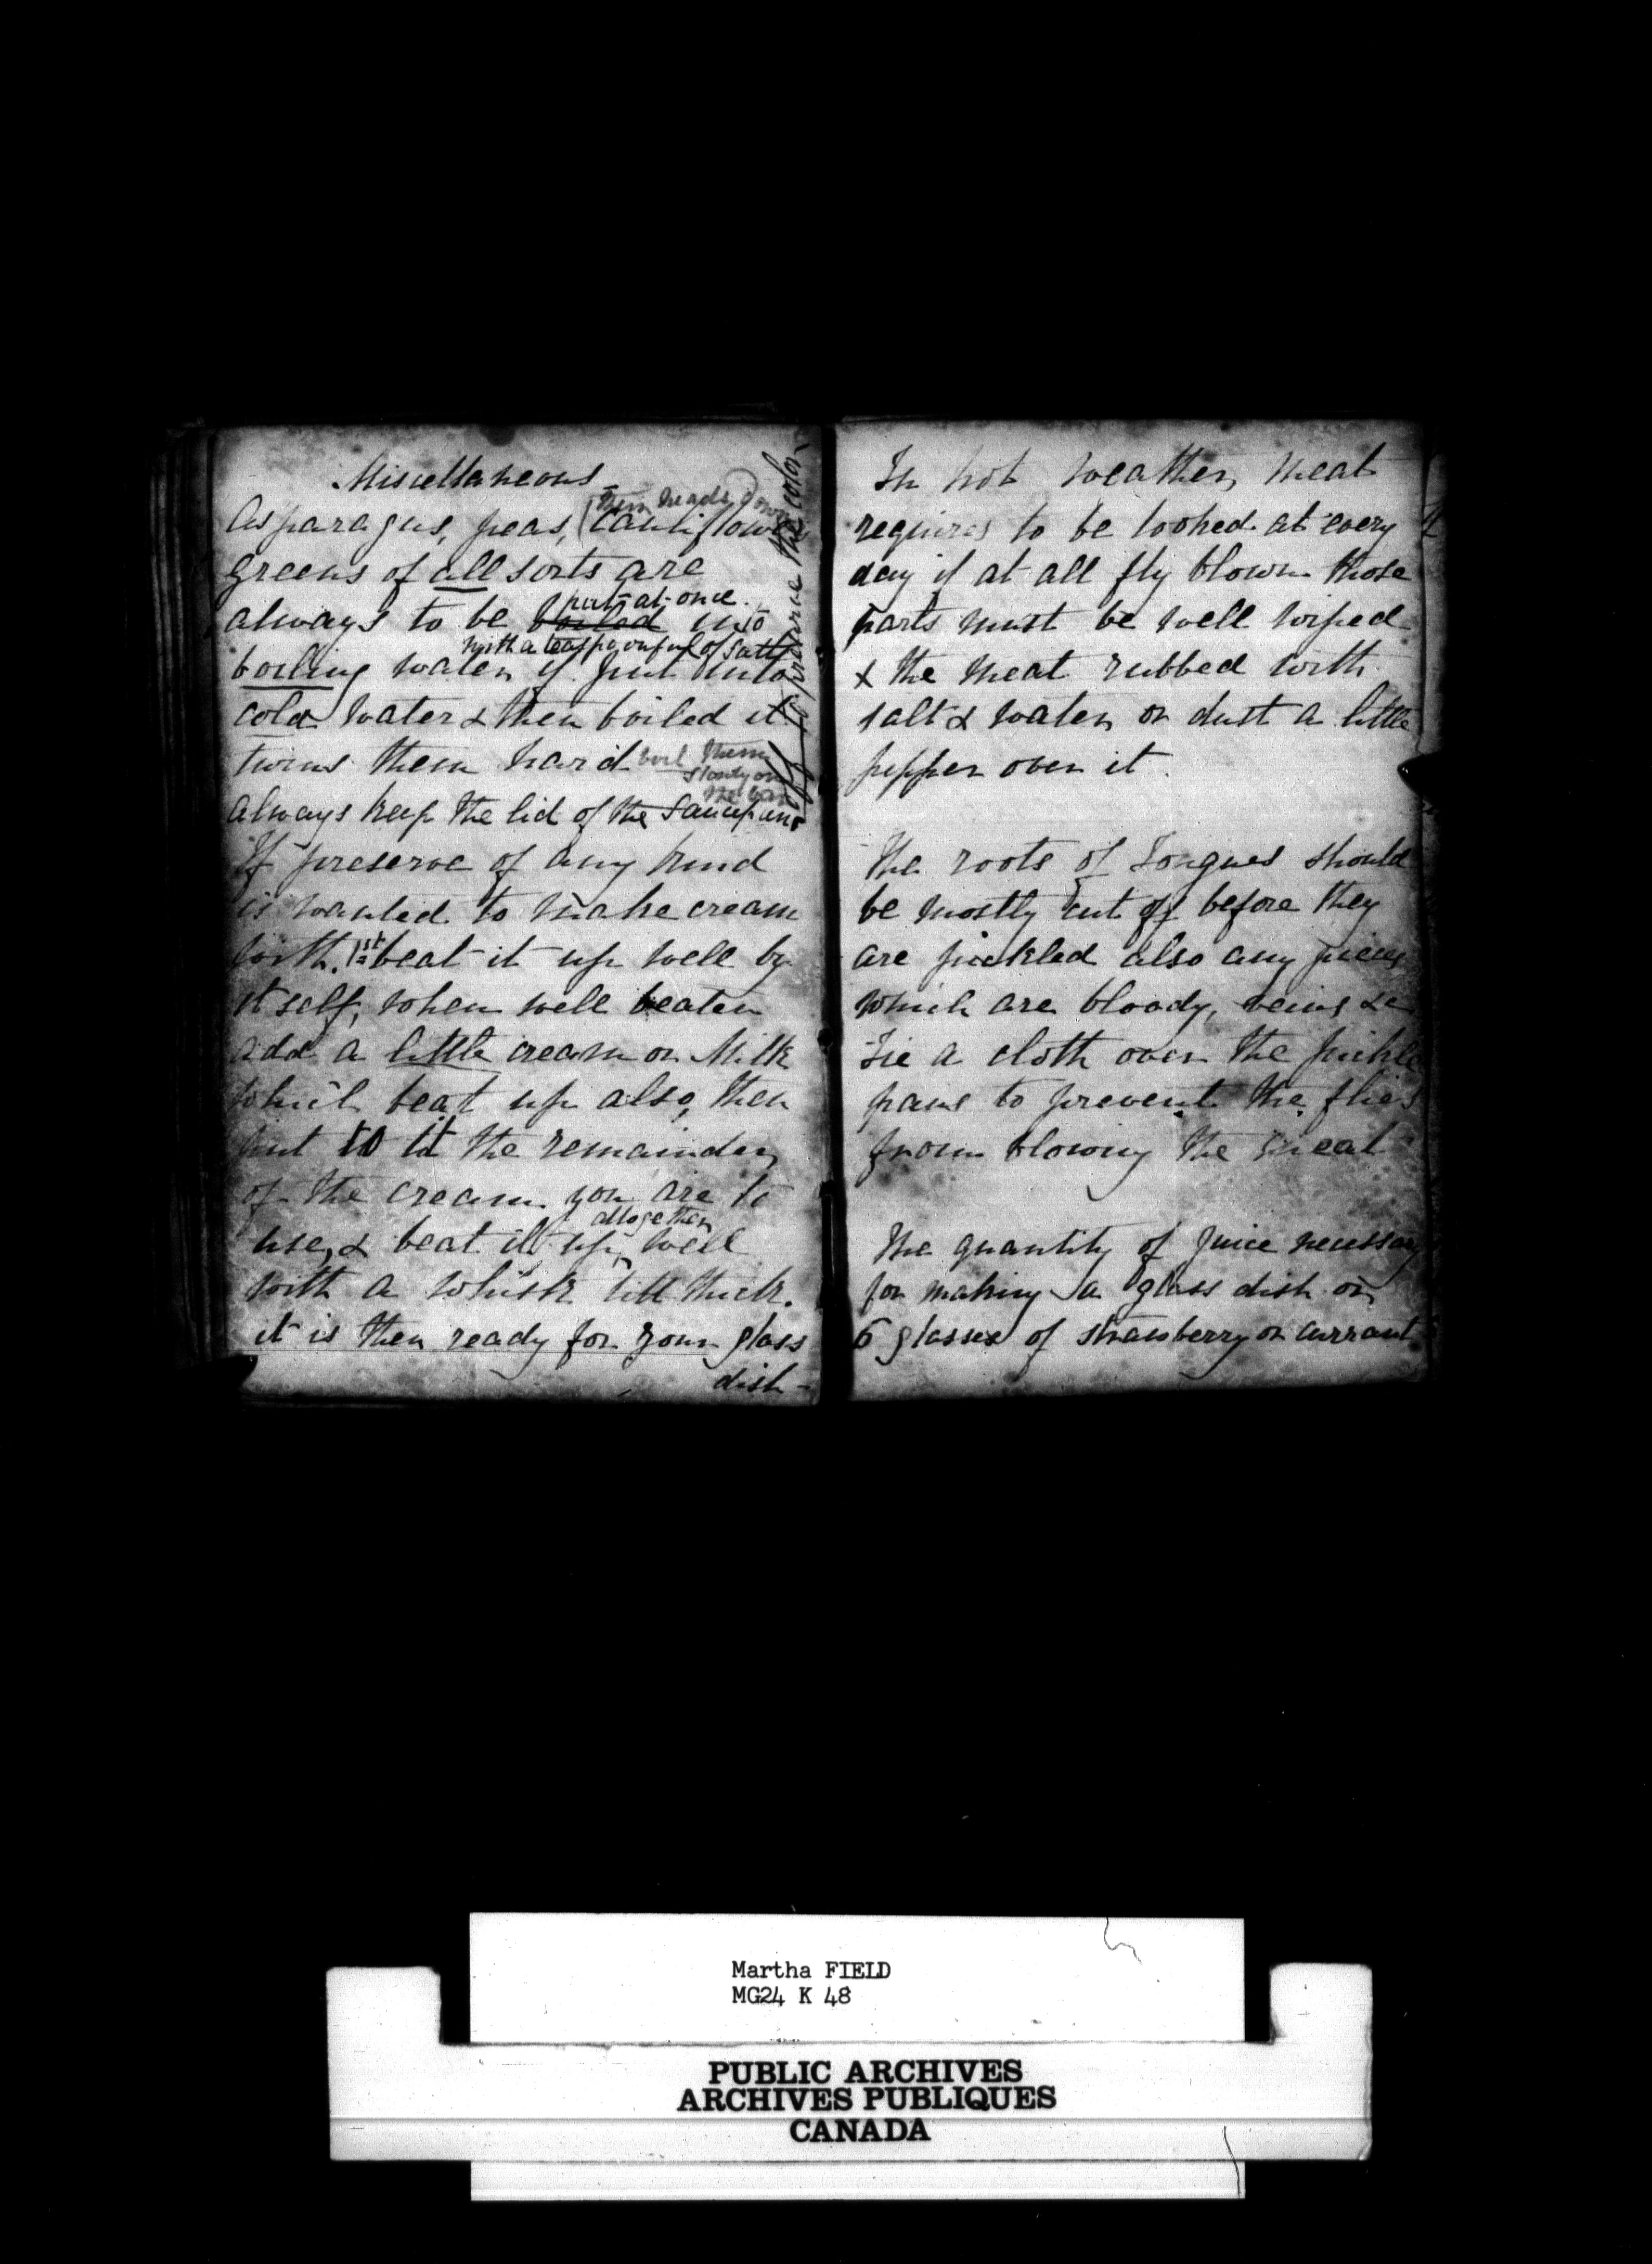 Miscellaneous
their heads down
Asparagus, peas, (Cauliflower
greens of all sorts are
put at once
always to be boiled into
with a teaspoonful of salt
boiling water if put into
cold water & then boiled it
turns them hard boil them
slowly on
the bar
always keep the lid of the saucepans
off to preserve the color
If preserve of any kind
is wanted to make cream
with, 1st beat it up well by
itself, when well beaten
add a little cream or Milk
which beat up also, then
put to it the remainder
of the cream you are to
altogether
use, & beat it up, well
with a whisk till thick.
it is then ready for your glass
dish -
In hot weather, meat
requires to be looked at every
day if at all fly blown those
parts must be well wiped
& the meat rubbed with
salt & water or dust a little
pepper over it.
The roots of Tongues should
be mostly cut off before they
are pickled also any pieces
which are bloody, veins &c
Tie a cloth over the pickle
pans to prevent the flies
from blowing the meat
The quantity of Juice necessary
for making a glass dish or
6 glasses of strawberry or currant
Martha FIELD
MG24 K 48
PUBLIC ARCHIVES
ARCHIVES PUBLIQUES
CANADA